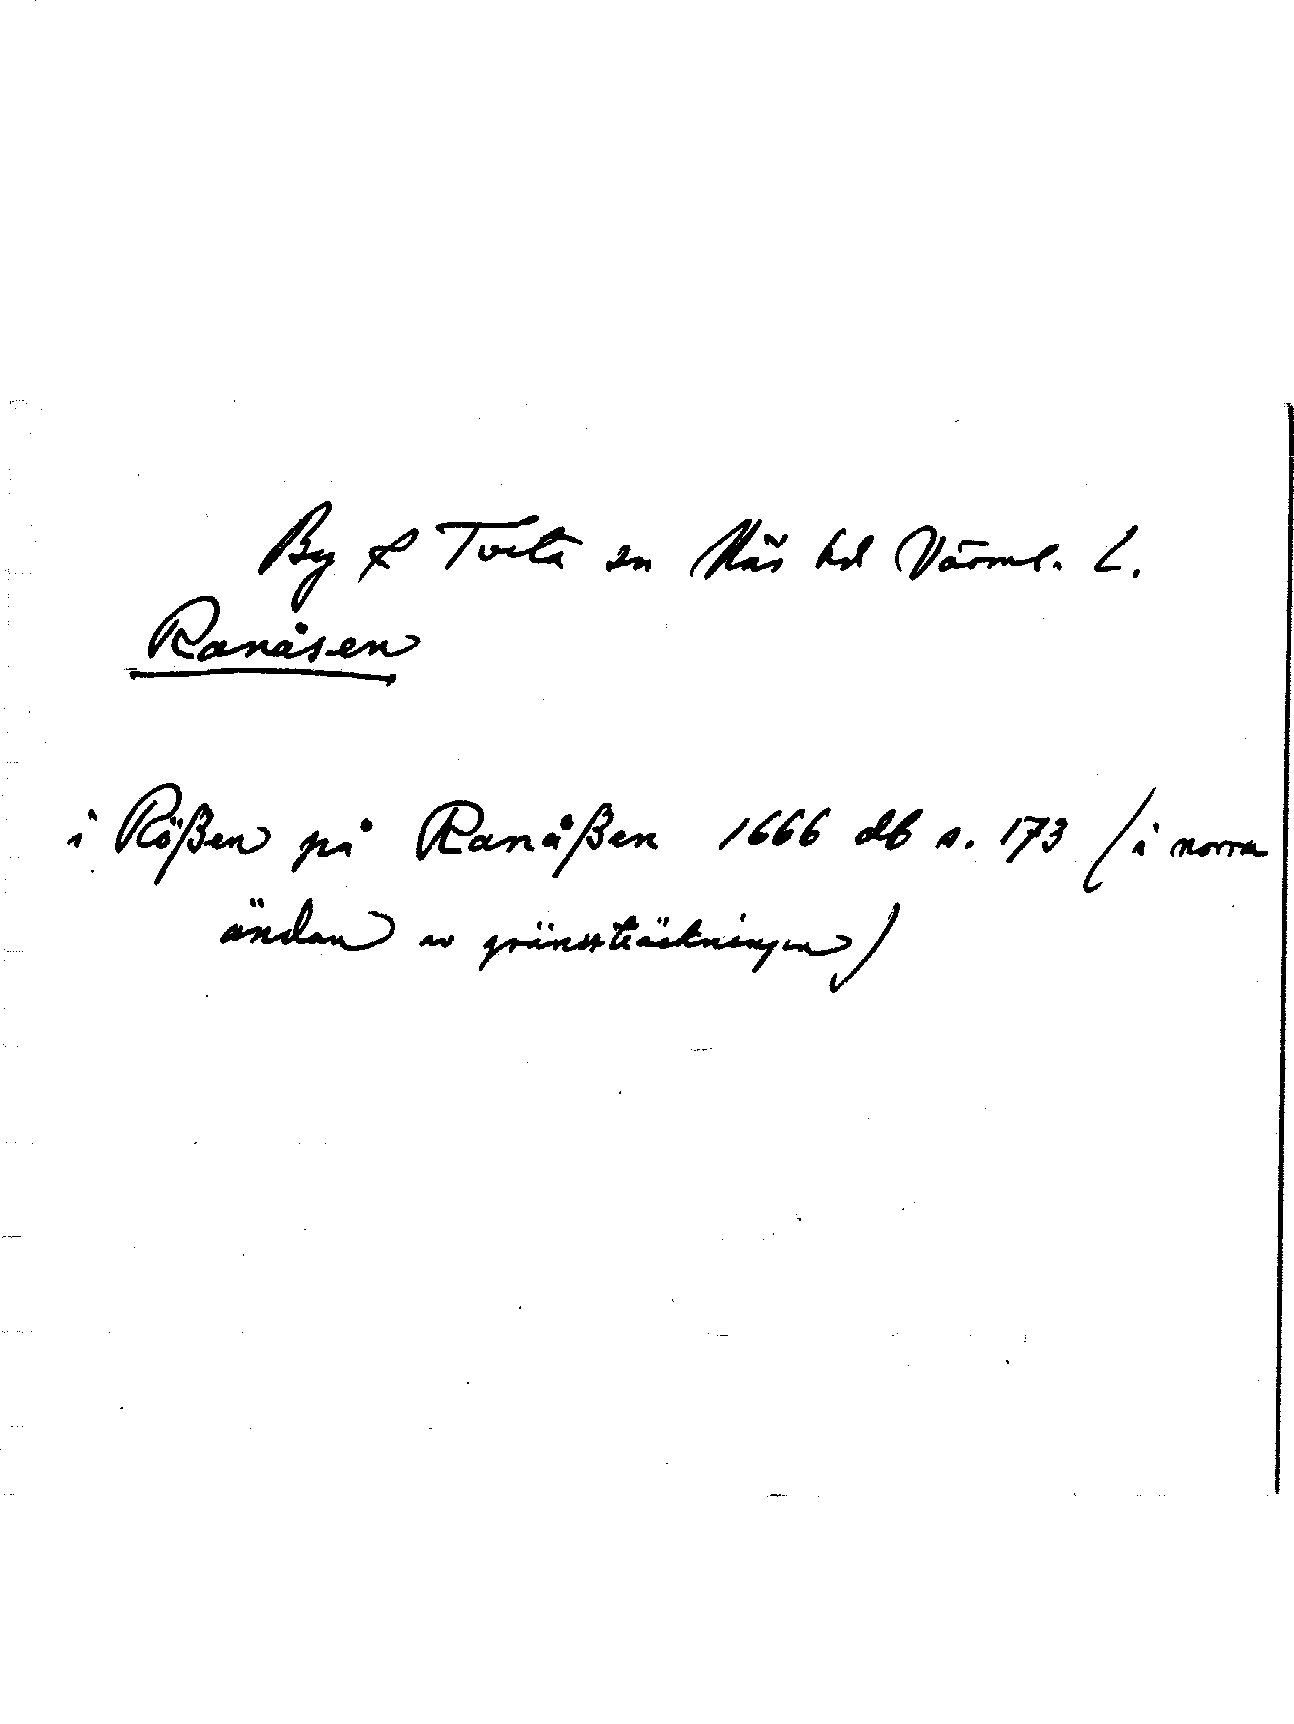 By & Tveta sn Näs hd Värml. L.
Ranåsen
i Rößen på Ranåßen 1666 db s. 173 (i norra
ändan av gränssträckningen)